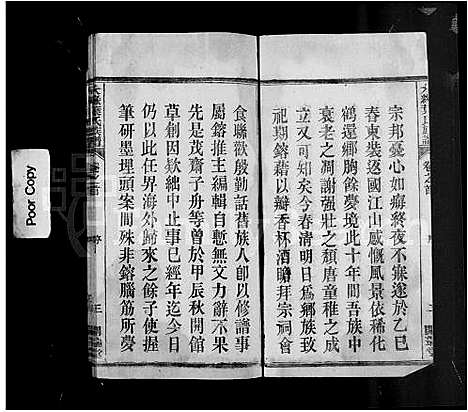 宗邦憂心如癇終夜不寐遂於乙巳
春束裝返國江山感慨風景依稀化
鶴還鄉胸餘夢境此十年間吾族中
衰老之凋謝强壯之頹唐童稚之成
立又可知矣今春清明日為鄉族致
祀期鎔藉以瓣香杯酒拜宗祠會
食聯歡殷勤話舊族人卽以修譜事
屬鎔推主編輯自慙無文力辭不果
先是茂齋子舟等曾於甲辰秋開館
草創因欵絀中止事已經年迄今日
仍以此任界海外歸來之餘子使握
筆研墨埋頭案間殊非鎔腦筋所夢
Poor Copy